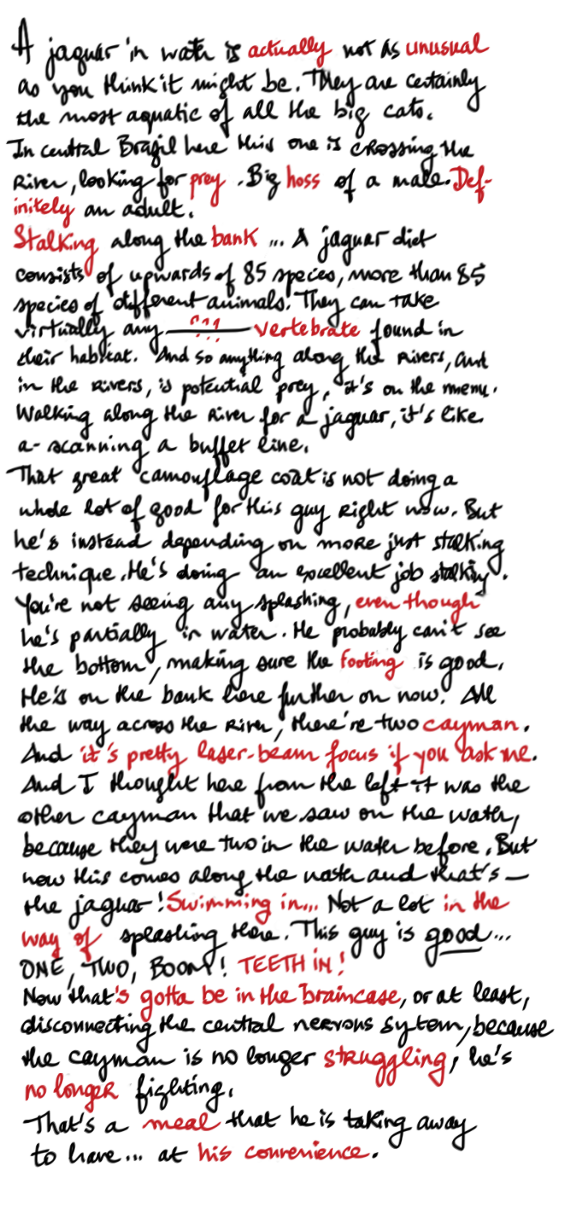 A jaguar in water is actually not as unusual
as you think it might be. They are certainly
the most aquatic of all the big cats.
In central Brazil here this one is crossing the
River, looking for prey. Big hoss of a male. Def-
initely an adult.
Stalking along the bank ... A jaguar diet
consists of upwards of 85 species, more than 85
species of different animals. They can take
virtually any ??? vertebrate found in
their habitat. And so anything along the rivers, and
in the rivers, is potential prey, it's on the menu.
Walking along the river for a jaguar, it's like
a- scanning a buffet line.
That great camouflage coat is not doing a
whole lot of good for this guy right now. But
he's instead depending on more just stalking
technique. He's doing an excellent job stalking.
You're not seeing any splashing, even though
he's partially in water. He probably can't see
the bottom, making sure the footing is good.
He's on the bank here further on now. All
the way across the River, there're two cayman.
And it's pretty laser-beam focus if you ask me.
And I thought here from the left it was the
other cayman that we saw on the water,
because they were two in the water before. But
now this comes along the and that's –
the jaguar! Swimming in... Not a lot in the
way of splashing there. This guy is good...
ONE, TWO, BOOM! TEETH IN!
Now that's gotta be in the braincase, or at least,
disconnecting the central nervous sytem, because
the cayman is no longer struggling, he's
no longer fighting.
That's a meal that he is taking away
to have... at his convenience.